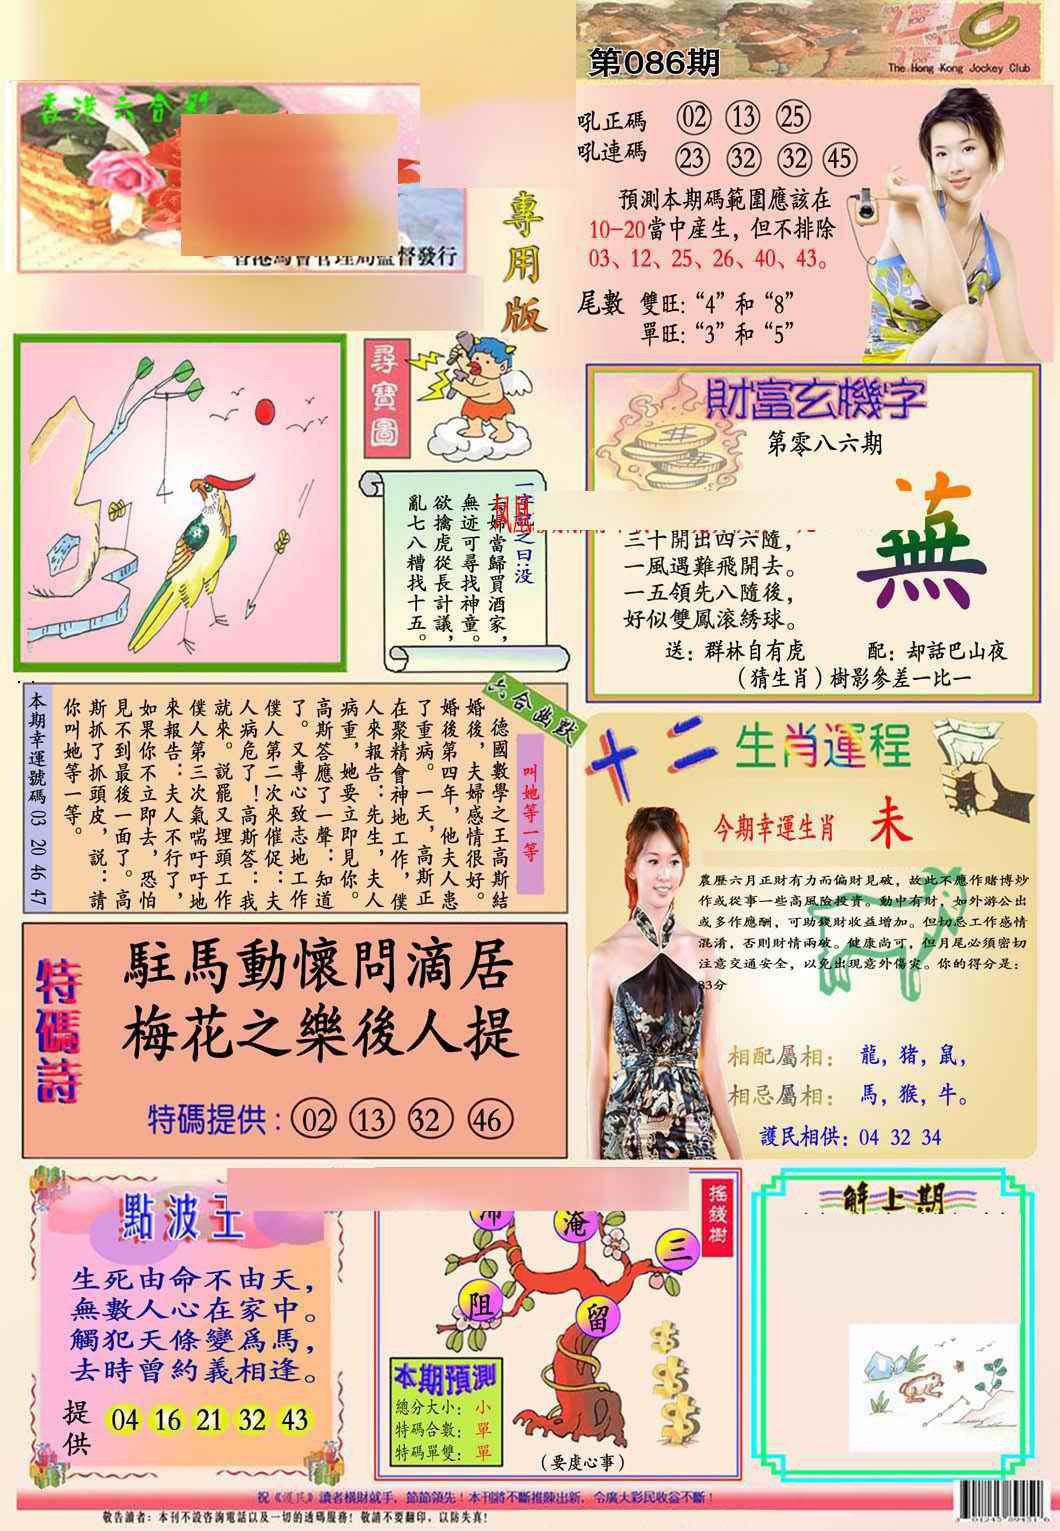 第086期
The Hong Kong Jockey Club
香港六合彩
香港馬會管理局監督發行
專用版
吼正碼 02 13 25
吼連碼 23 32 32 45
預測本期碼範圍應該在
10-20當中産生，但不排除
03、12、25、26、40、43。
尾數 雙旺：“4”和“8”
單旺：“3”和“5”
尋寶圖
一字記之曰：没
夫婦當歸買酒家，
無迹可尋找神童。
欲擒虎從長計議，
亂七八糟找十五。
財富玄機字
第零八六期
三十開出四六隨，
一風遇難飛開去。
一五領先八隨後，
好似雙鳳滚綉球。
蕪
送：群林自有虎 配：却話巴山夜
（猜生肖）樹影參差一比一
六合幽默
叫她等一等
德國數學之王高斯結
婚後，夫婦感情很好。
婚後第四年，他夫人患
了重病。一天，高斯正
在聚精會神地工作，僕
人來報告：先生，夫人
病重，她要立即見你。
高斯答應了一聲：知道
了。又專心致志地工作
僕人第二次來催促：夫
人病危了！高斯答：我
就來。説罷又埋頭工作
僕人第三次氣喘吁吁地
來報告：夫人不行了，
如果你不立即去，恐怕
見不到最後一面了。高
斯抓了抓頭皮，説：請
你叫她等一等。
本期幸運號碼 03 20 46 47
十二生肖運程
今期幸運生肖 未
農歷六月正財有力而偏財見破，故此不應作賭博炒
作或從事一些高風險投資。動中有財，如外游公出
或多作應酬，可助錢財收益增加。但切忌工作感情
混淆，否則財情兩破。健康尚可，但月尾必須密切
注意交通安全，以免出現意外傷灾。你的得分是：
83分
相配屬相： 龍，猪，鼠，
相忌屬相： 馬，猴，牛。
護民相供：04 32 34
特碼詩
駐馬動懷問滴居
梅花之樂後人提
特碼提供：02 13 32 46
點波王
生死由命不由天，
無數人心在家中。
觸犯天條變爲馬，
去時曾約義相逢。
提供 04 16 21 32 43
摇錢樹
滯
淹
三
阻
留
本期預測
總分大小：小
特碼合數：單
特碼單雙：單
（要虔心事）
解上期
祝《護民》讀者横財就手，節節領先！本刊將不斷推陳出新，令廣大彩民收益不斷！
敬告讀者：本刊不設咨詢電話以及一切的透碼服務！敬請不要翻印，以防失真！